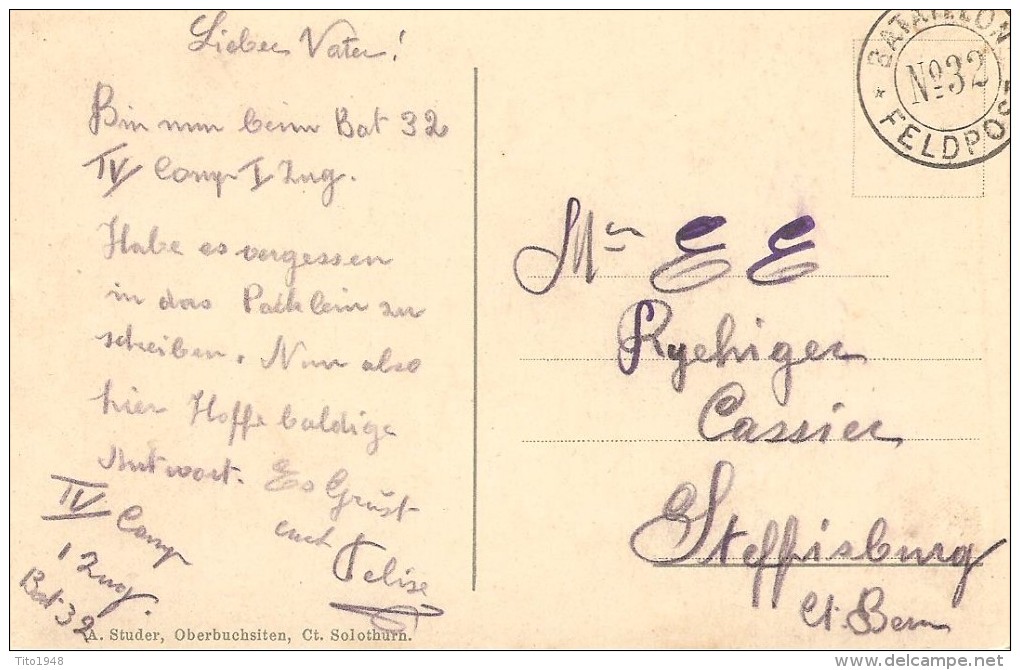 Lieber Vater!
Bin nun beim Bat 32
IV Comp I Zug.
Habe es vergessen
in das Päcklein zu
schreiben. Nun also
hier Hoffe baldige
Antwort. Es Grüst
euch Felise
IV Comp
I Zug.
Bat 32
A. Studer, Oberbuchsiten, Ct. Solothurn.
BATAILLON
No 32
* FELDPOST
Mr E E
Ryehiger
Cassier
Steffisburg
Ct. Bern
Tito1948
delcampe.net